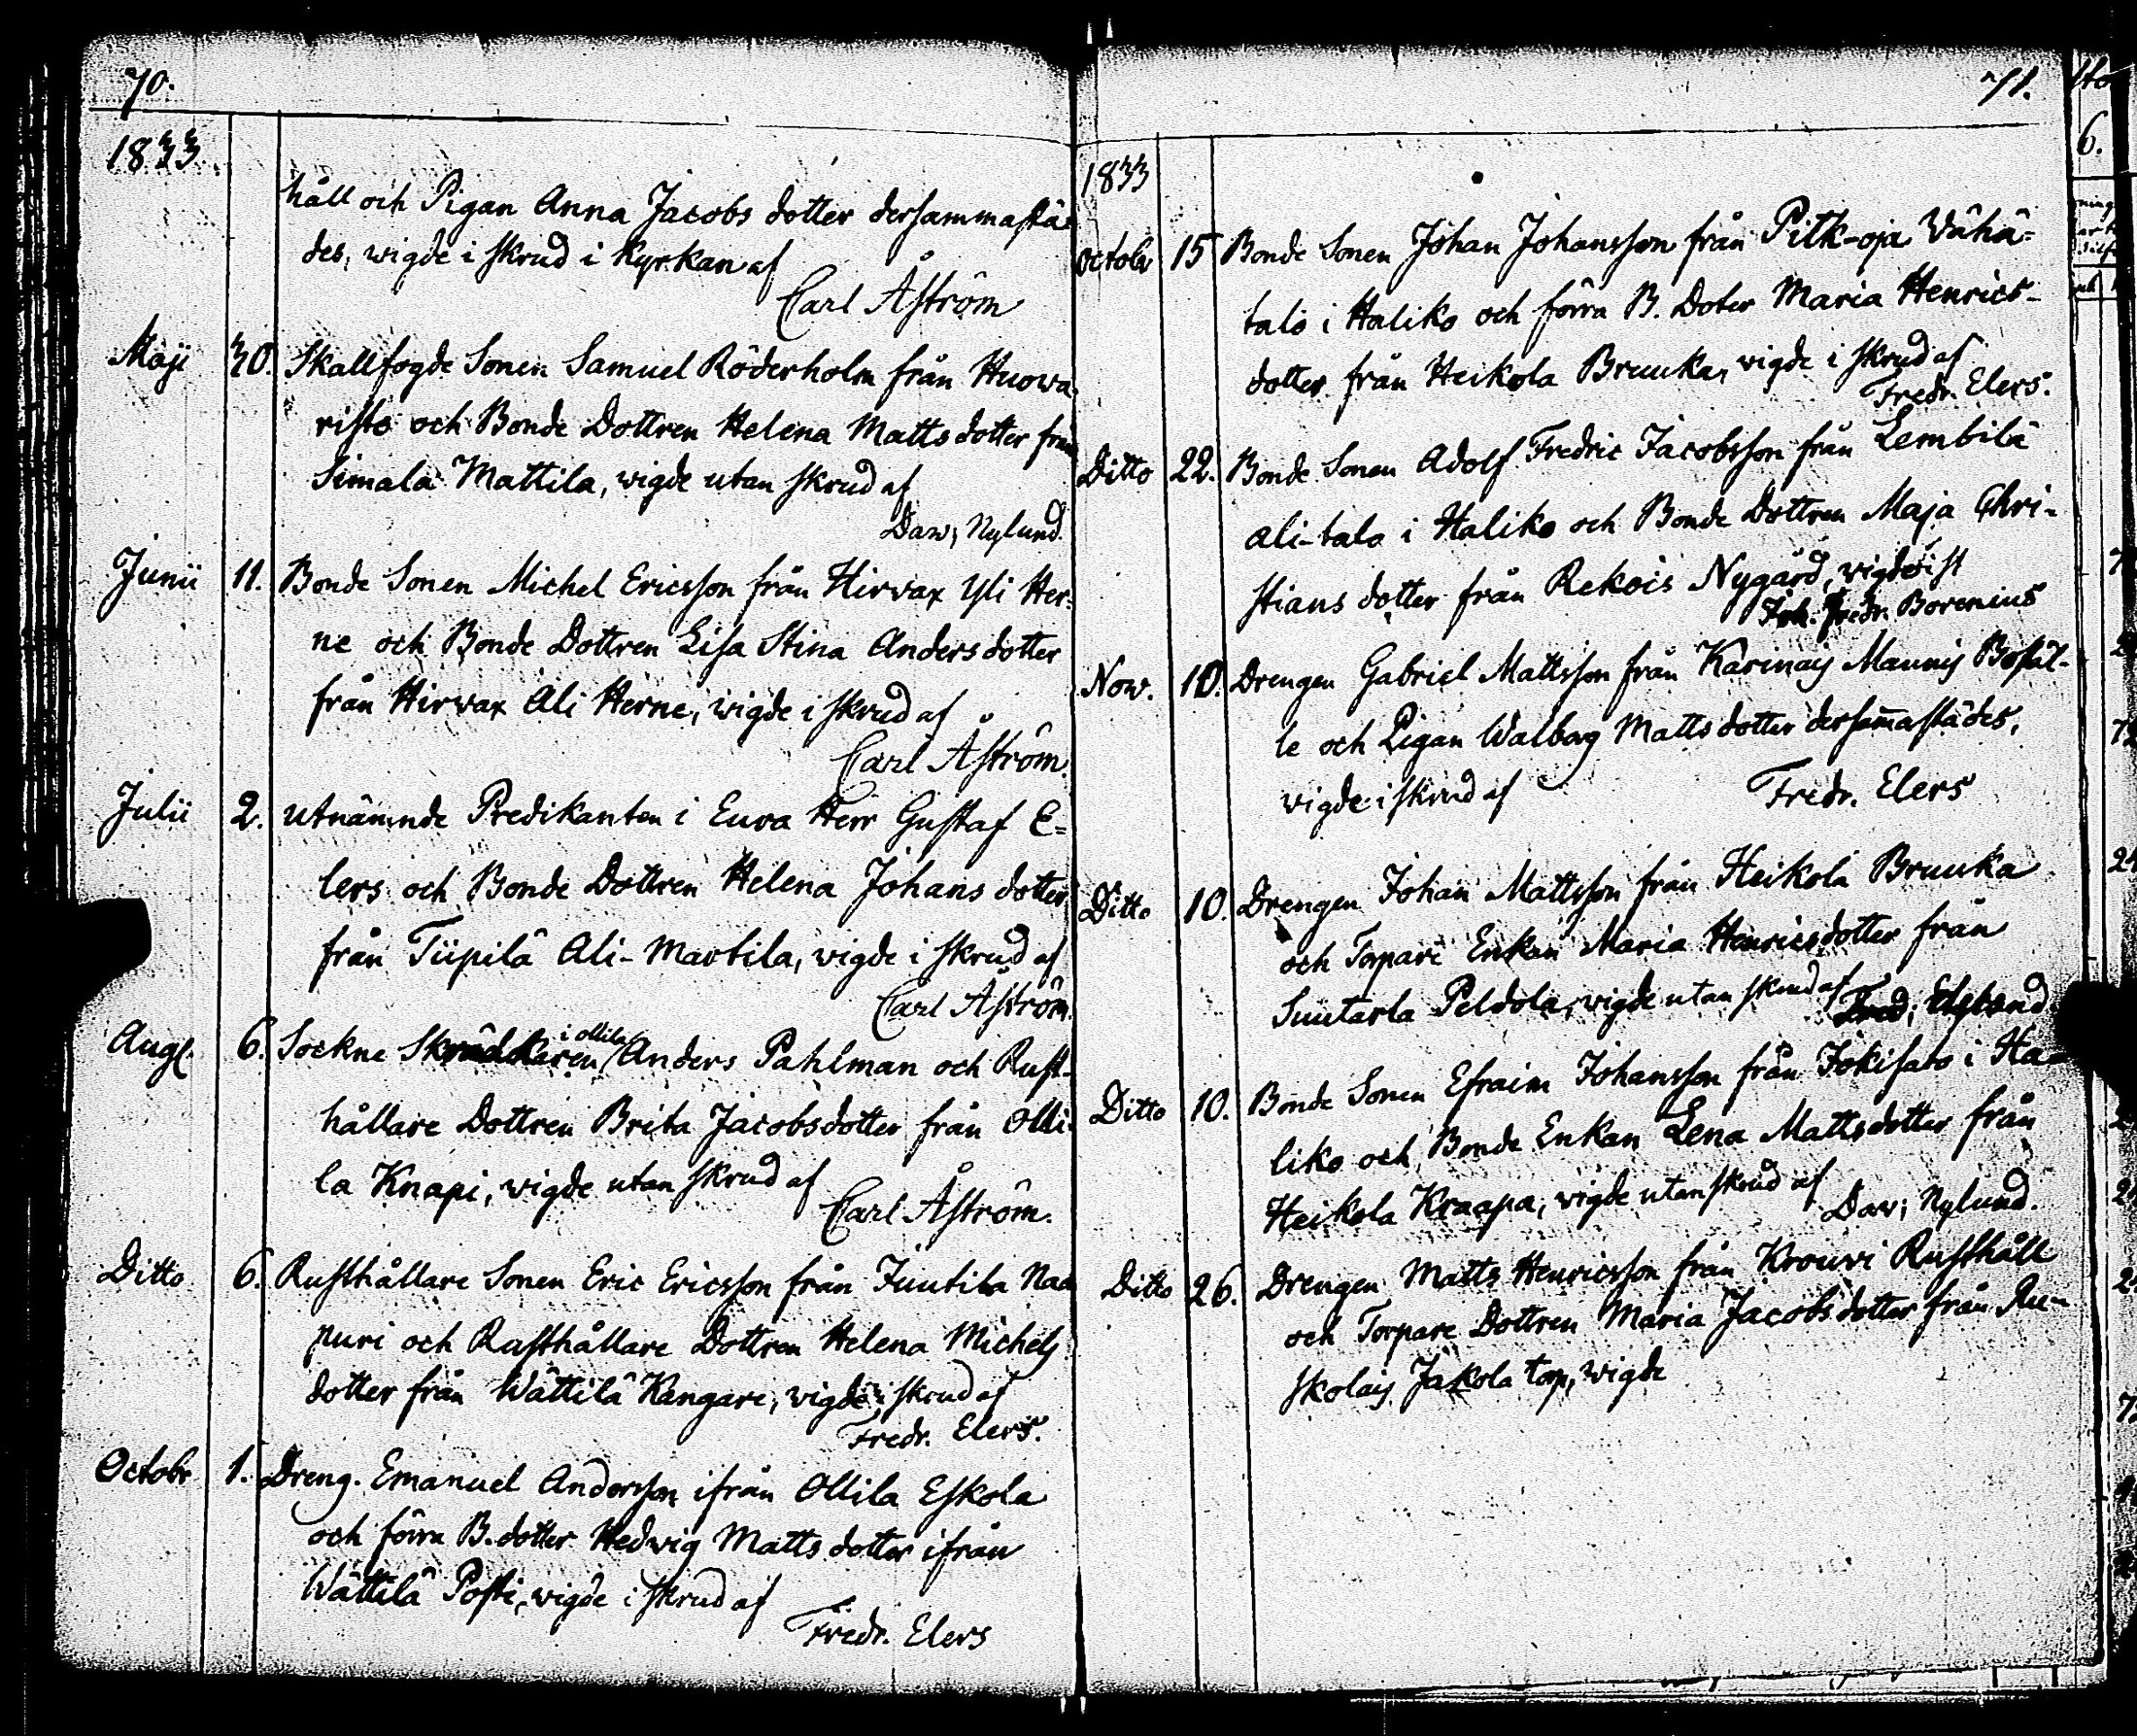 70.
1833.
håll och Pigan Anna Jacobs dotter dersammastä-
des, wigde i skrud i Kyrkan af
Carl Åström
Maji 30. Skallfogde Sonen Samuel Röderholm från Huowa-
risto och Bonde Dottren Helena Matts dotter från
Simala Mattila, wigde utan skrud af
Daw; Nylund.
Junii 11. Bonde Sonen Michel Ericsson från Hirvax Yli Her-
ne och Bonde Dottren Lisa Stina Anders dotter
från Hirvax Ali Herne, wigde i skrud af
Carl Åström.
Julii 2. utnämnde Predikanten i Eura Herr Gustaf E-
lers och Bonde Dottren Helena Johans dotter
från Tiipilä Ali-Martila, wigde i skrud af
Carl Åström.
Aug. 6. Sockne Skräddaren i Ollila Anders Pahlman och Rust-
hållare Dottren Brita Jacobsdotter från Olli-
la Knapi, wigde utan skrud af
Carl Åström.
Ditto 6. Rusthållare Sonen Eric Ericsson från Juutila Naa
puri och Rusthållare Dottren Helena Michels
dotter från Wättilä Kangare, wigde i skrud af
Fredr. Elers.
Octobr 1. Dreng. Emanuel Andersson ifrån Ollila Eskola
och förra B. dotter Hedwig Matts dotter ifrån
Wättilä Posti, wigde i skrud af
Fredr. Elers
71.
1833
Octobr 15 Bonde Sonen Johan Johansson från Pitk-oja Vähä-
talo i Haliko och förra B. Doter Maria Henrics-
dotter från Heikola Bruuka, wigde i skrud af
Fredr. Elers.
Ditto 22. Bonde Sonen Adolf Fredric Jacobsson från Lembilä
Ali-talo i Haliko och Bonde Dottren Maja Chri-
stians dotter från Rekois Nygård, wigde i sk
Joh. Fredr. Borenius
Now. 10. Drengen Gabriel Mattsson från Karinais Maunis Bostäl-
le och Pigan Walborg Matts dotter dersammastädes,
wigde i skrud af Fredr. Elers
Ditto 10. Drengen Johan Mattsson från Heikola Bruuka
och Torpare Enkan Maria Henricsdotter från
Suutarla Peldola, wigde utan skrud af
Ditto 10. Bonde Sonen Efraim Johansson från Jokisato i Ha-
liko och Bonde Enkan Lena Mattsdotter från
Heikola Kraapa, wigde utan skrud af Daw; Nylund.
Ditto 26. Drengen Matts Henricsson från Krouvi Rusthåll
och Torpare Dottren Maria Jacobs dotter från Ru-
skolais Jakola torp, wigde